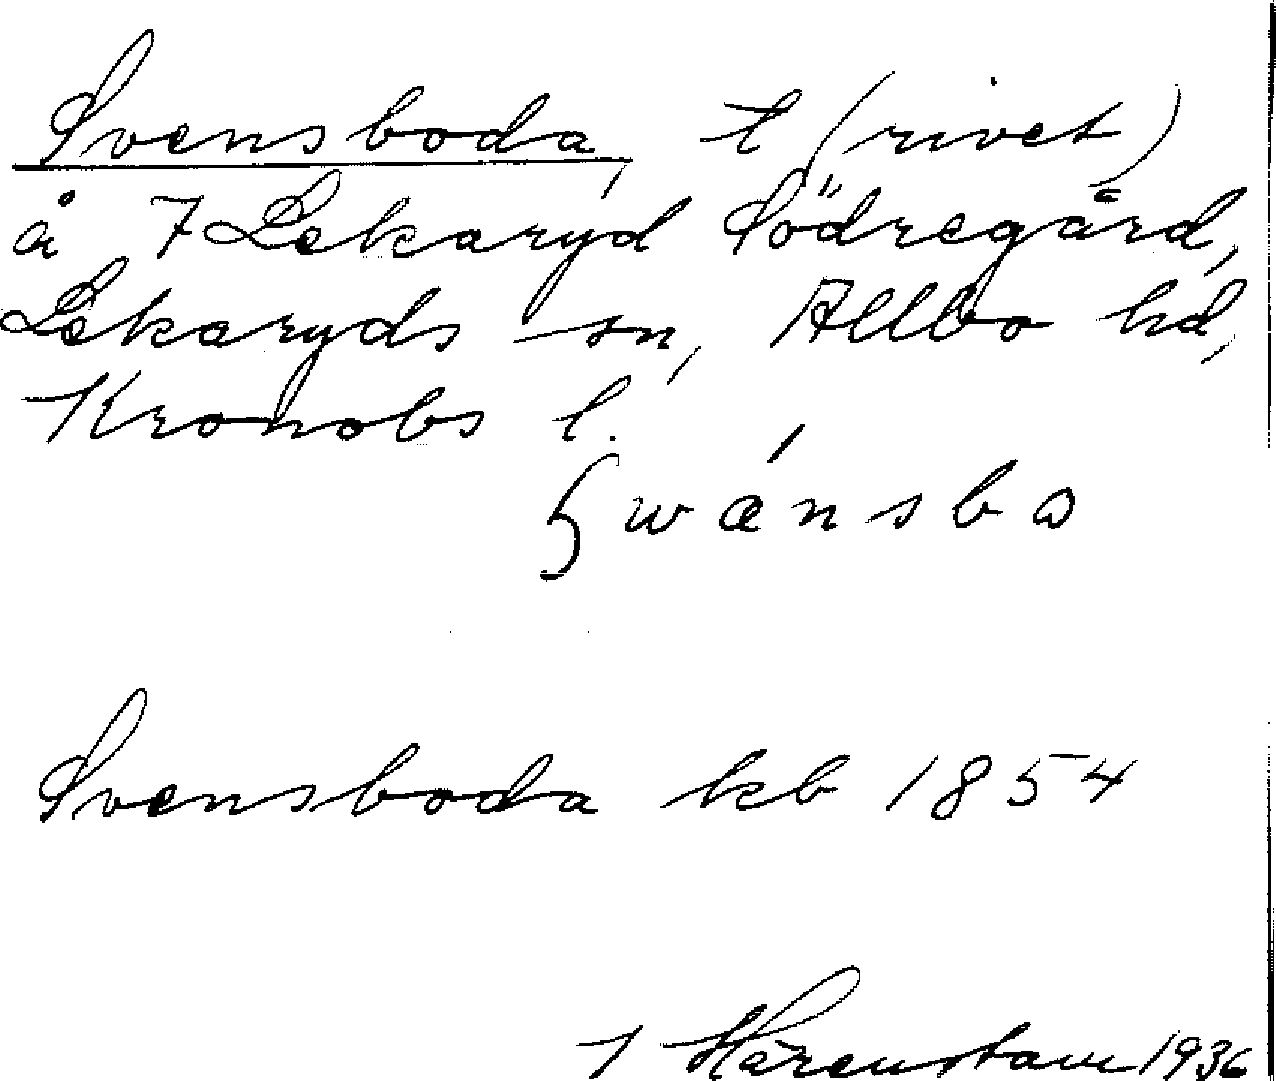 Svensboda, t (rivet)
å 7 Lekaryd Södregård,
Lekaryds sn, Allbo hd,
Kronobs l.
Svensboda kb 1854
1936